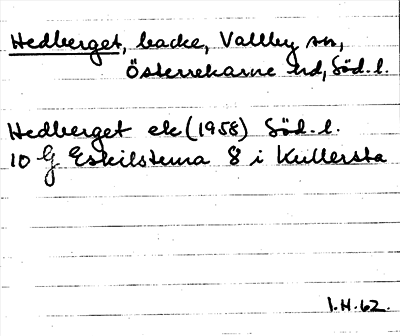 Hedberget, backe, Vallby sn,
Österrekarne hd, Söd. l.
Hedberget ek (1958) Söd. l.
10 G Eskilstuna 8 i Kullersta
I.H.62.